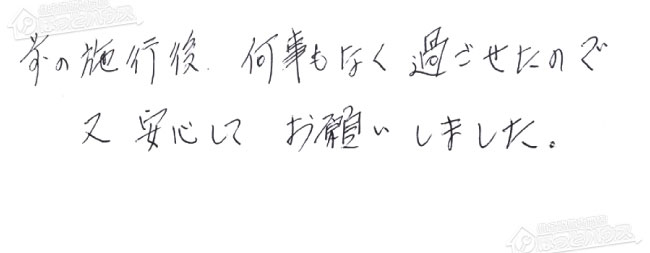 前の施行後 何事もなく過ごせたので
又 安心して お願い しました。